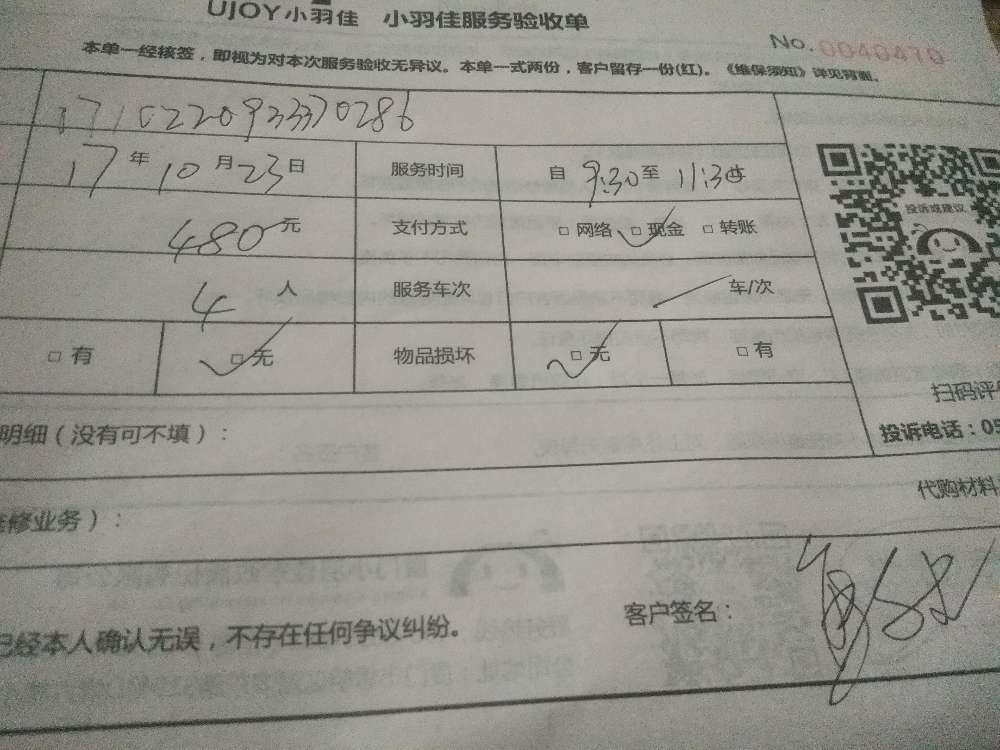 UJOY小羽佳 小羽佳服务验收单
No.0040410
本单一经核签，即视为对本次服务验收无异议。本单一式两份，客户留存一份(红)。《维保须知》详见背面。
17102209333370286
17年10月23日 服务时间 自9:30至11:30
480元 支付方式 □网络 □现金 □转账
4人 服务车次 车/次
□有 □无 物品损坏 □无 □有
投诉或建议
扫码评
投诉电话：05
明细（没有可不填）：
代购材料
修业务）：
已经本人确认无误，不存在任何争议纠纷。
客户签名：